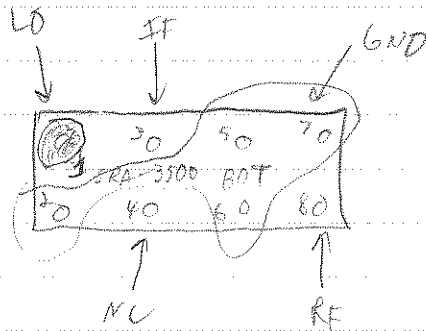 LO IF GND
3 5 7
1
SRA-3500 BOT
2 4 6 8
NC RF